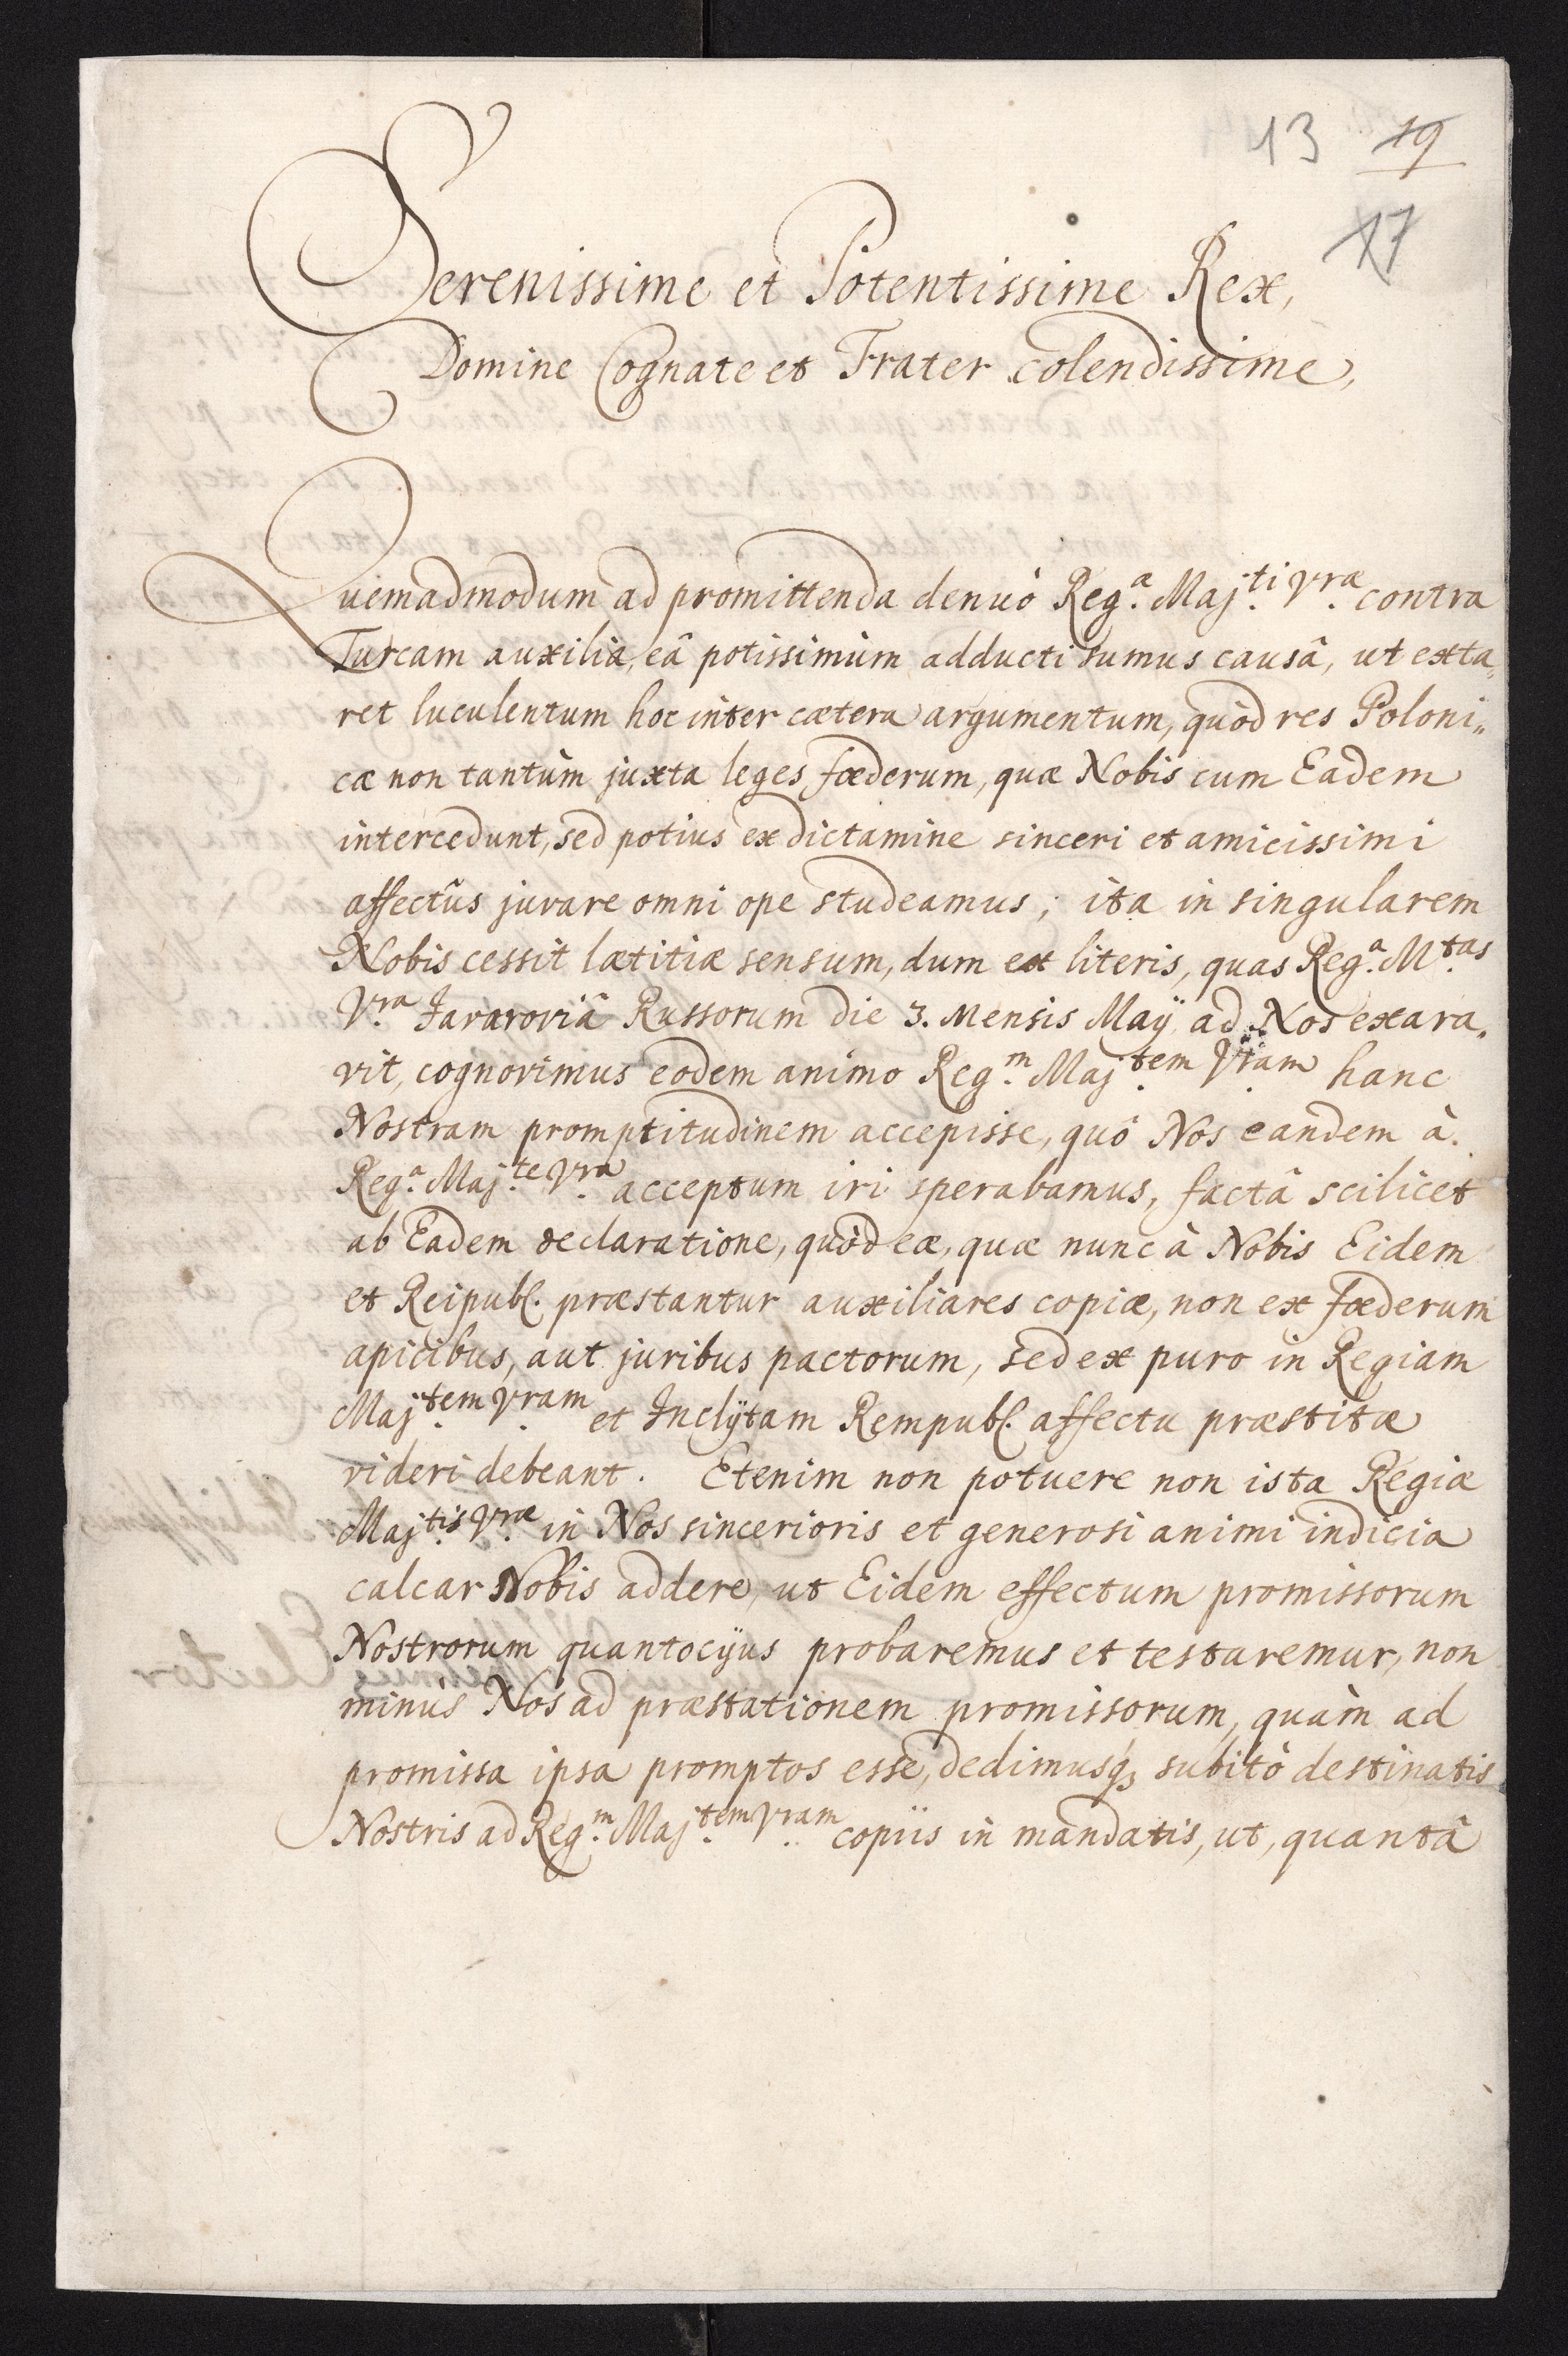 13 19
17
Serenissime et Potentissime Rex,
Domine Cognate et Frater colendissime,
Quemadmodum ad promittenda denuò Reg.ᵃ Maj.ᵗⁱ Vræ contra
Turcam auxilia, eâ potissimùm adducti sumus causâ, ut exta„
ret luculentum hoc inter cætera argumentum, quòd res Poloni„
cæ non tantùm juxta leges fœderum, quæ Nobis cum Eadem
intercedunt, sed potius ex dictamine sinceri et amicissimi
affectûs juvare omni ope studeamus; ita in singularem
Nobis cessit lætitiæ sensum, dum ex literis, quas Reg.ᵃ M.ᵗᵃˢ
V.ʳᵃ Javaroviâ Russorum die 3. Mensis Maÿ ad Nos exara„
vit, cognovimus eodem animo Reg.ᵐ Maj.ᵗᵉᵐ Vram hanc
Nostram promptitudinem accepisse, quô Nos eandem à
Reg.ᵃ Maj.ᵗᵉ Vra acceptum iri sperabamus, factâ scilicet
ab Eadem declaratione, quòd eæ, quæ nunc à Nobis Eidem
et Reipubl. præstantur auxiliares copiæ, non ex fœderum
apicibus, aut juribus pactorum, sed ex puro in Regiam
Maj.ᵗᵉᵐ Vram et Inclÿtam Rempubl. affectu præstitæ
videri debeant. Etenim non potuere non ista Regiæ
Maj.ᵗⁱˢ Vræ in Nos sincerioris et generosi animi indicia
calcar Nobis addere, ut Eidem effectum promissorum
Nostrorum quantocÿus probaremus et testaremur, non
minùs Nos ad præstationem promissorum, quàm ad
promissa ipsa promptos esse, dedimusq; subitò destinatis
Nostris ad Reg.ᵐ Maj.ᵗᵉᵐ Vram copiis in mandatis, ut, quantâ